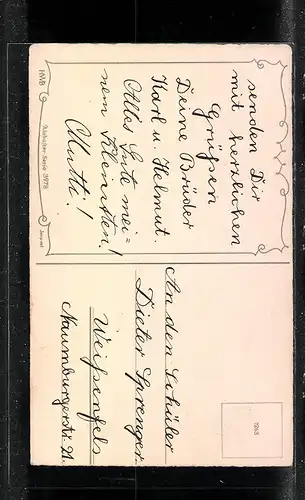 senden Dir
mit herzlichen
Grüßen
Deine Brüder
Karl u. Helmut.
Alles Gute mei=
nem Kleinsten!
Mutti!
HWB
Serie 3978
An den Schüler
Dieter Sprenger
Weißenfels
Naumburgerstr. 21.